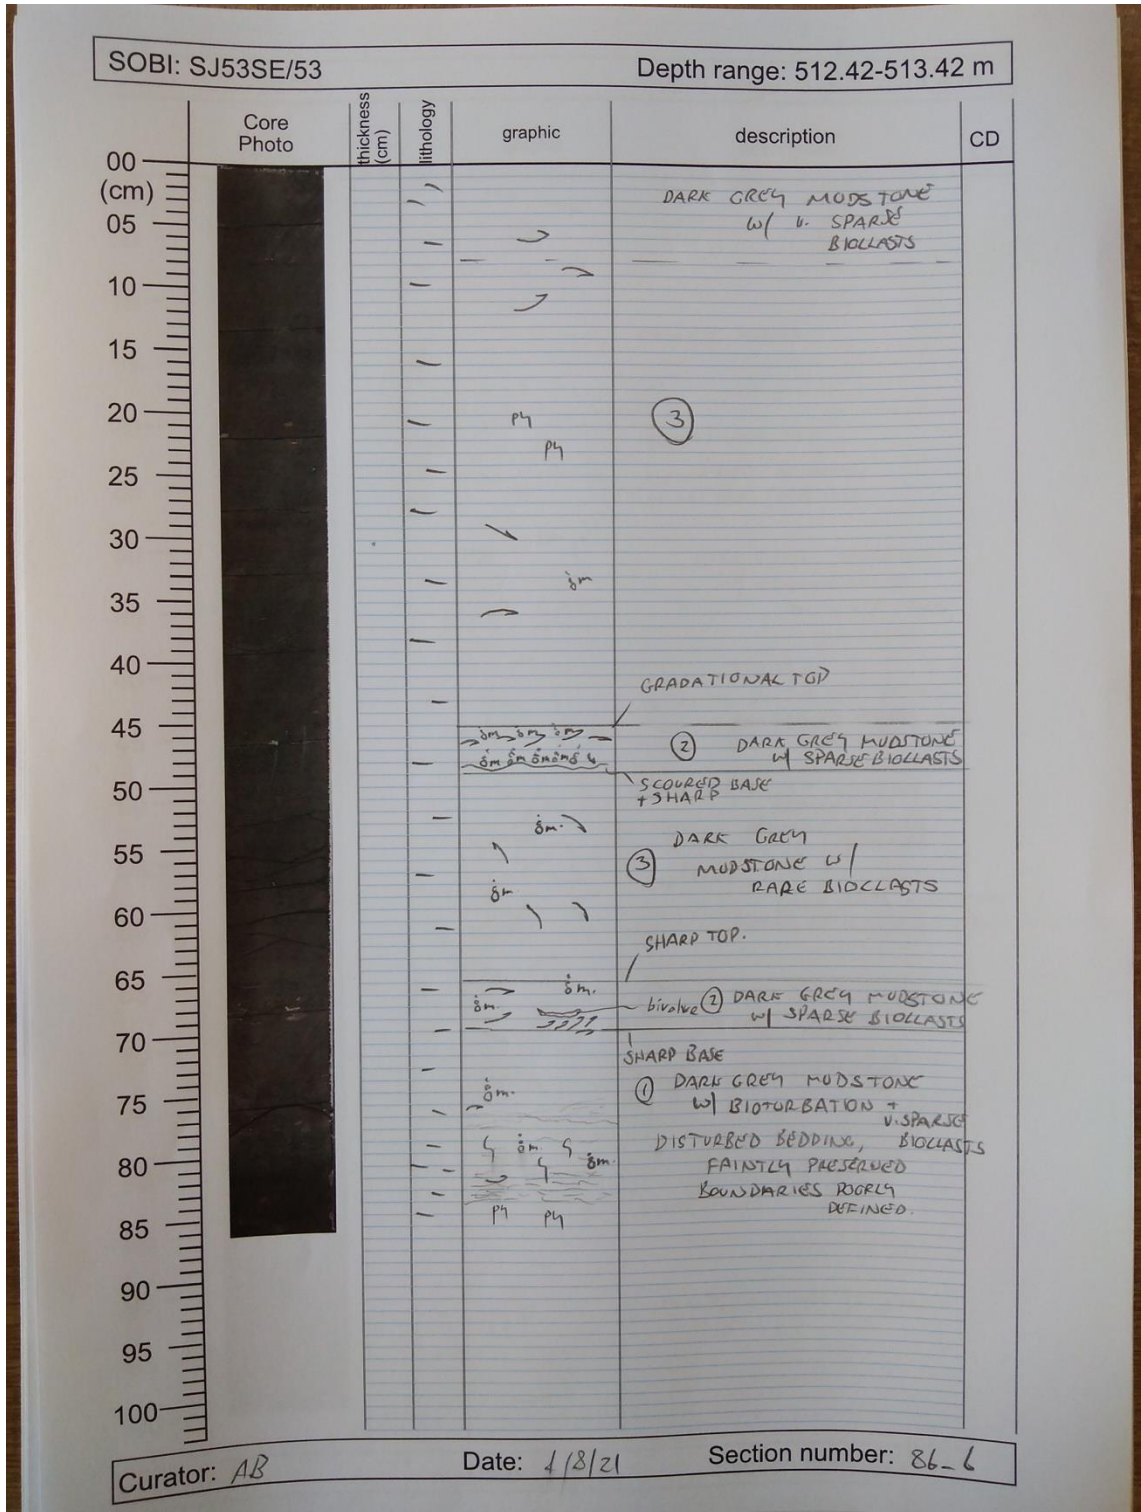 SOBI: SJ53SE/53
Depth range: 512.42-513.42 m
Core
Photo
thickness
(cm)
lithology
graphic
description
CD
00
(cm)
05
10
15
20
25
30
35
40
45
50
55
60
65
70
75
80
85
90
95
100
DARK GREY MUDSTONE
w/ v. SPARSE
BIOCLASTS
py
py
3
GRADATIONAL TOP
2 DARK GREY MUDSTONE
w/ SPARSE BIOCLASTS
SCOURED BASE
+ SHARP
DARK GREY
3 MUDSTONE w/
RARE BIOCLASTS
SHARP TOP.
bivalve 2 DARK GREY MUDSTONE
w/ SPARSE BIOCLASTS
SHARP BASE
1 DARK GREY MUDSTONE
w/ BIOTURBATION +
V. SPARSE
DISTURBED BEDDING, BIOCLASTS
FAINTLY PRESERVED
BOUNDARIES POORLY
DEFINED.
py py
Curator: AB
Date: 1/8/21
Section number: 86_6